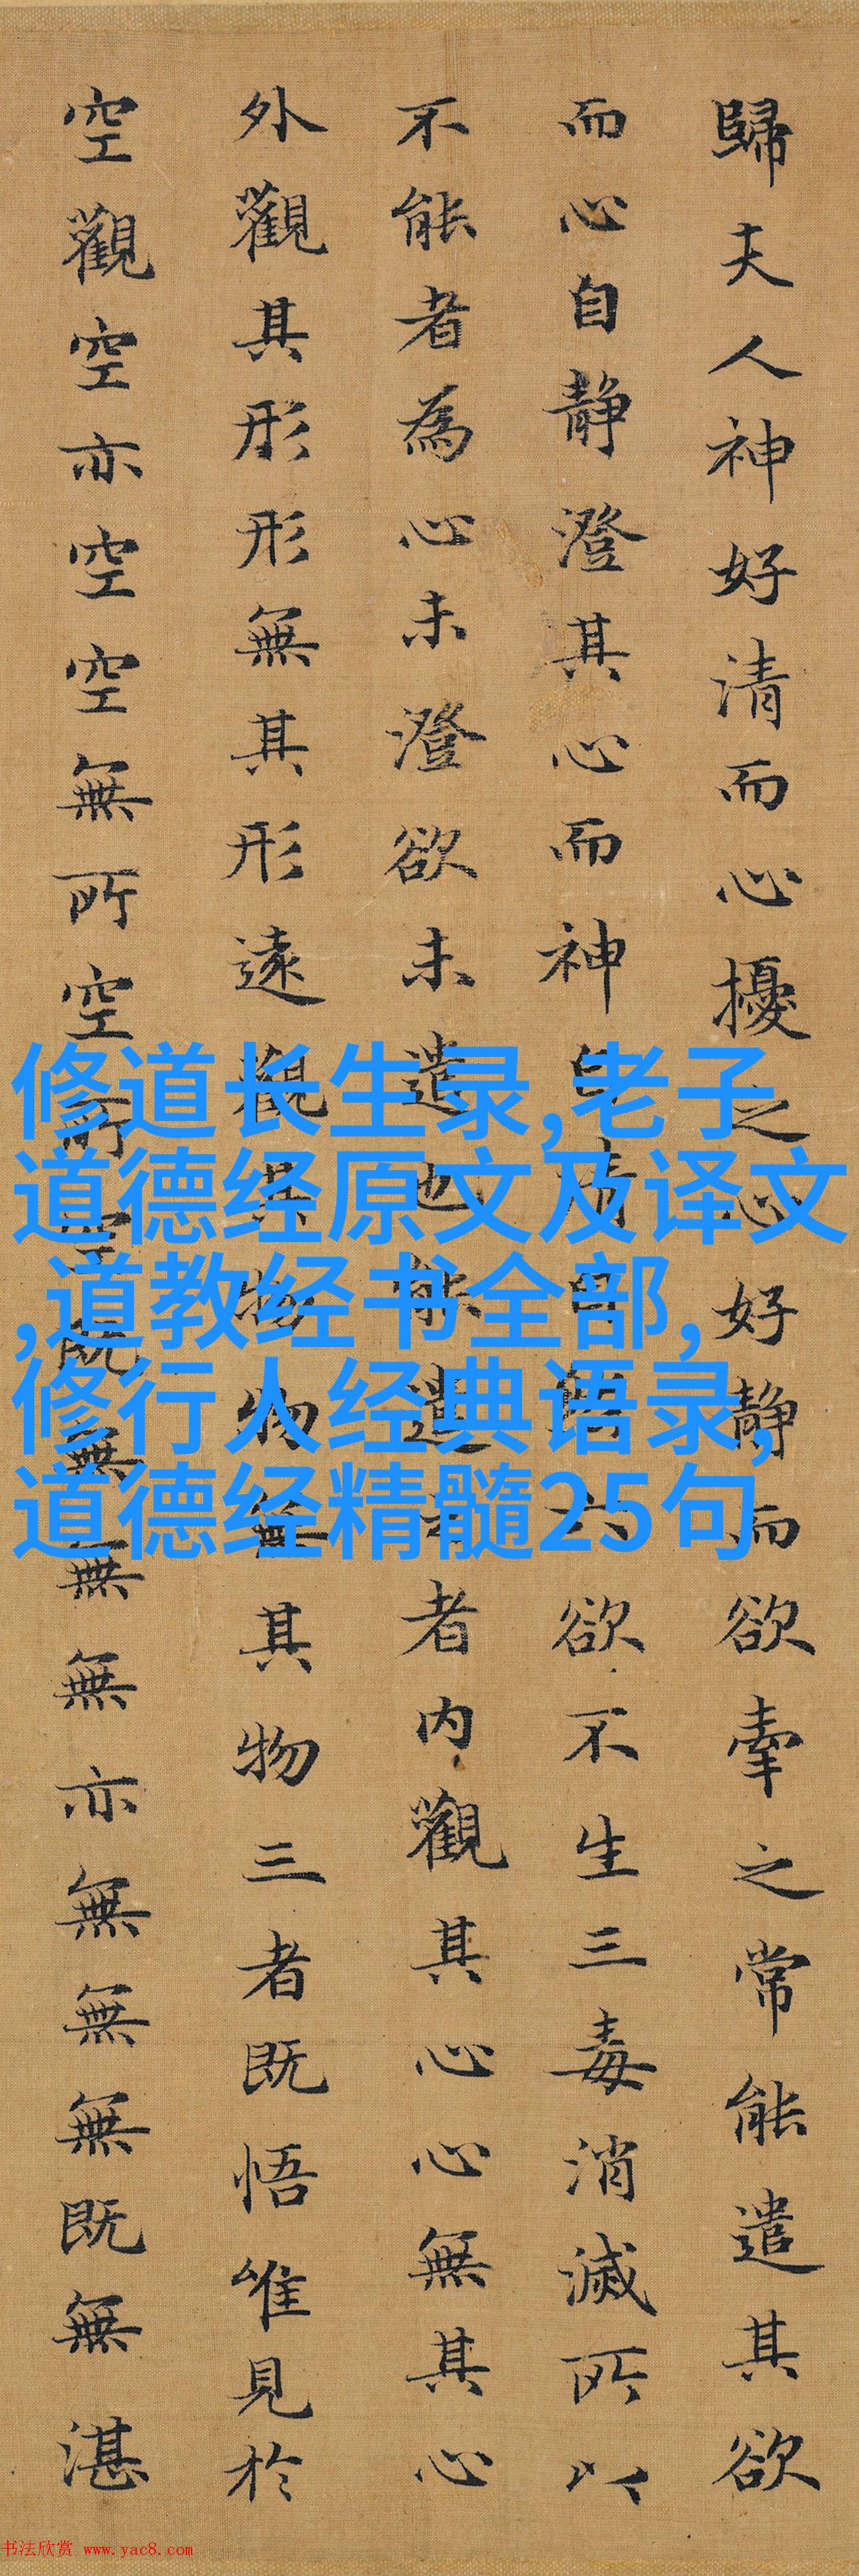 歸夫人神好清而心擾之心好静而欲牽之常能遣其欲
而心自静澄其心而神自清自然六欲不生三毒消滅所以
不能者為心未澄欲未遣也能遣之者内觀其心心無其心
外觀其形形無其形遠觀其物物無其物三者既悟唯見於
空觀空亦空空無所空所空既無無無亦無無無既無湛
修道长生录,老子
道德经原文及译文
,道教经书全部,
修行人经典语录,
道德经精髓25句
书法欣赏 www.yac8.com